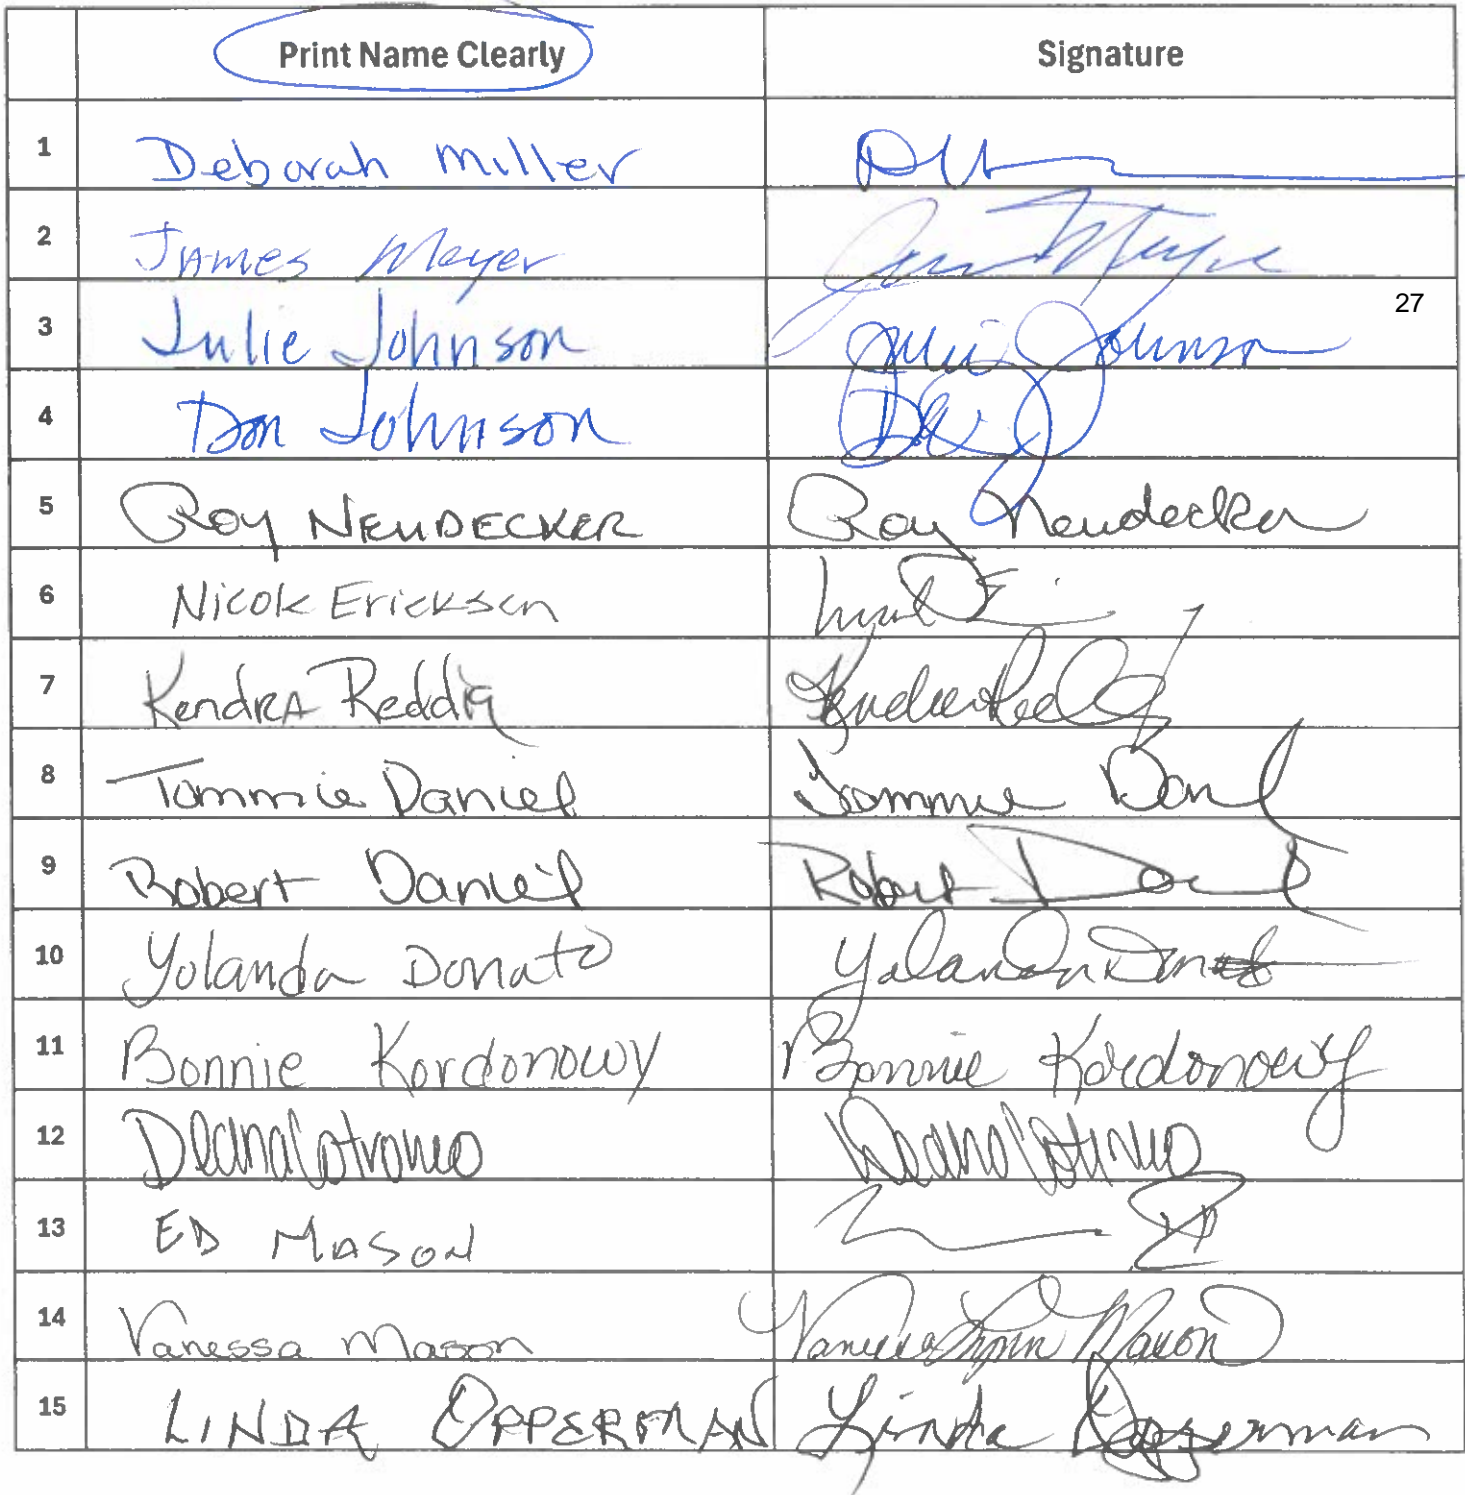 Print Name Clearly Signature
1 Deborah Miller
2 James Meyer James Meyer
27
3 Julie Johnson Julie Johnson
4 Don Johnson
5 Roy NEUDECKER Roy Neudecker
6 Nicole Ericksen
7 Kendra Reddig Kendra Reddig
8 Tommie Daniel Tommie Daniel
9 Robert Daniel Robert Daniel
10 Yolanda Donato Yolanda Donato
11 Bonnie Kordonowy Bonnie Kordonowy
12 Deana Cotroneo Deana Cotroneo
13 ED MASON
14 Vanessa Mason Vanessa Lynn Mason
15 LINDA OPPERMAN Linda Opperman